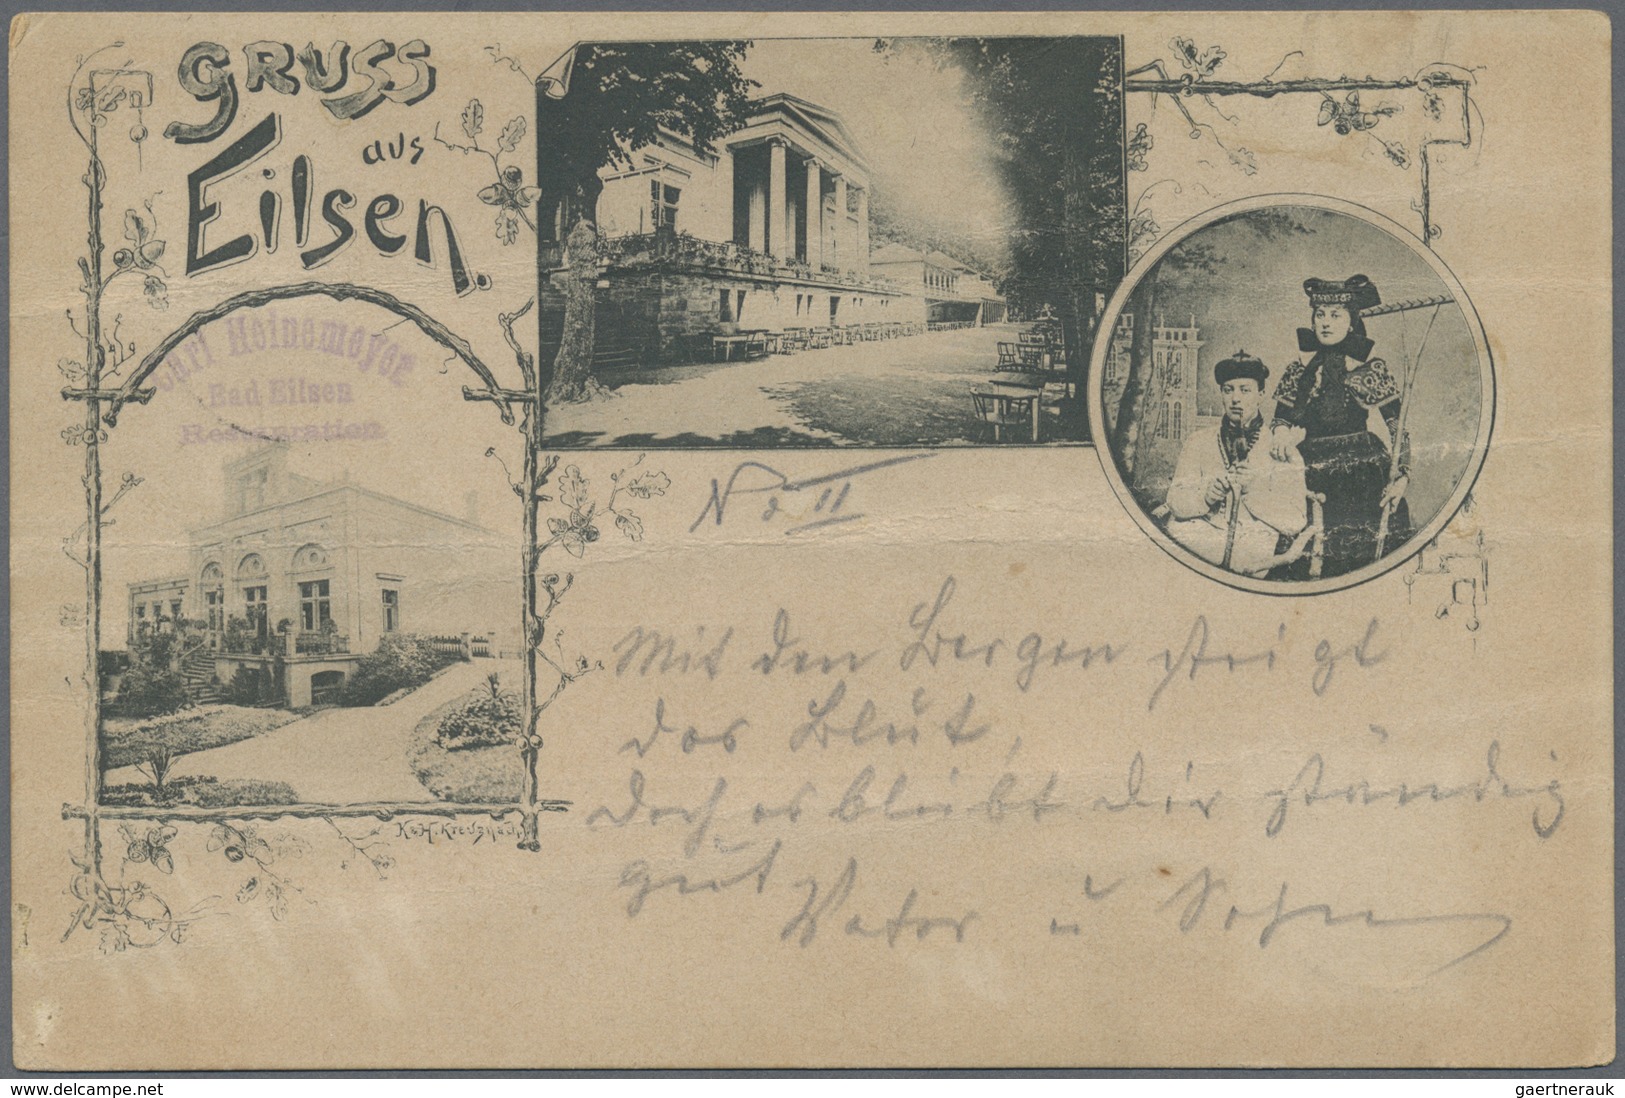 GRUSS
aus
Eilsen.
Carl Heinemeyer
Bad Eilsen
Restauration
No II
Mit den Bergen steigt
das Blut,
Doch es bleibt Dir ständig
gut
Vater u Sohn
K&H. Kreuznach
delcampe.net
gaertnerauk